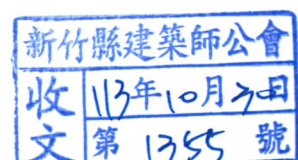 新竹縣建築師公會
收文
113年10月30日
第 1355 號